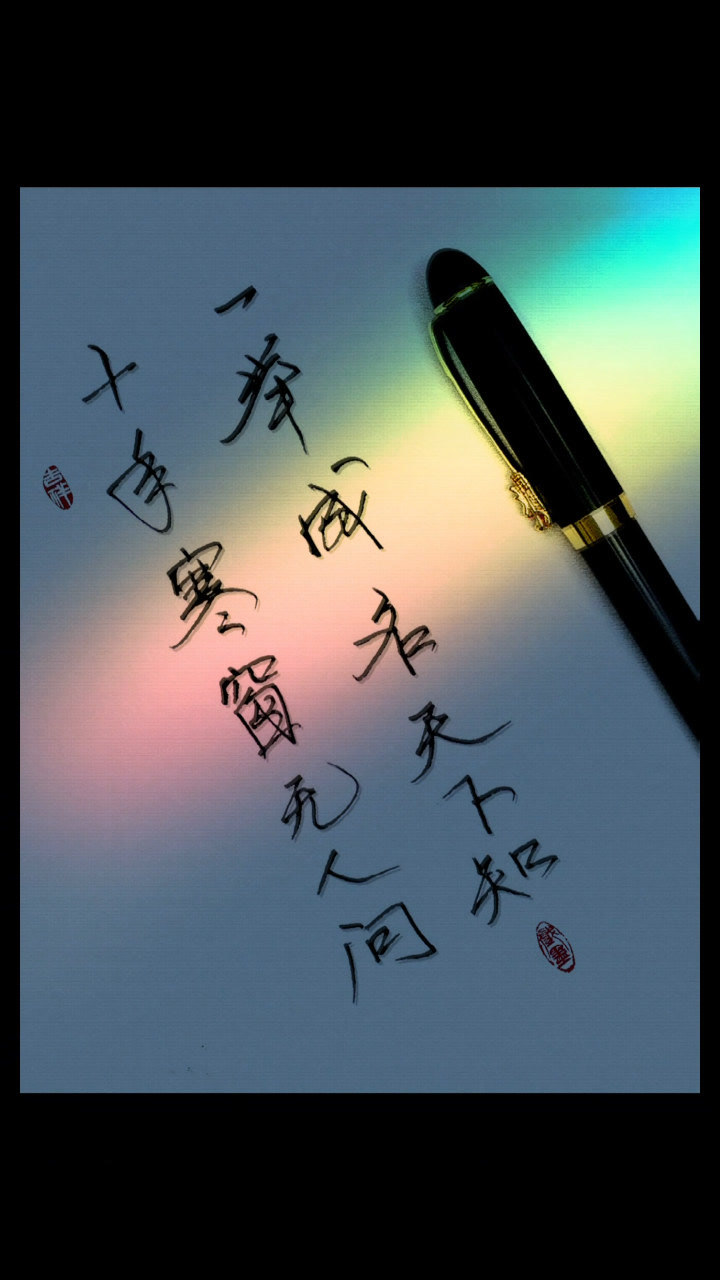 吉祥
十年寒窗无人问
一举成名天下知